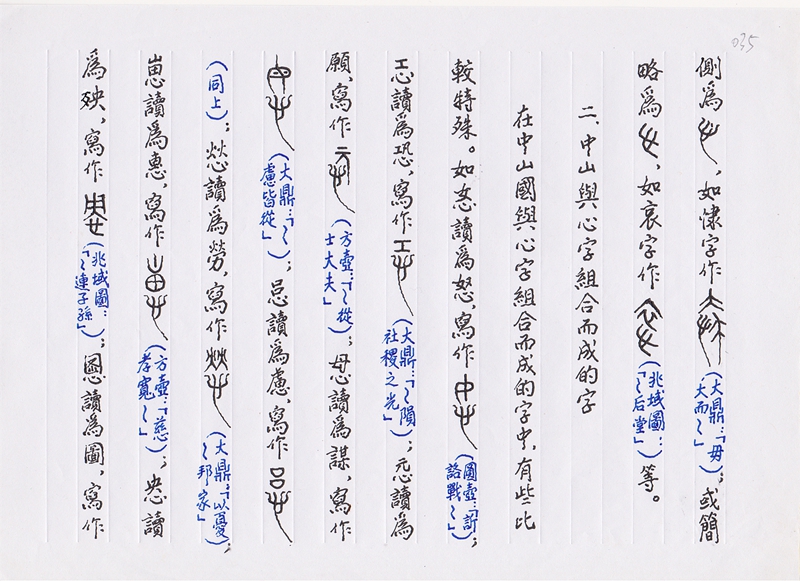 側為,如字作(大鼎:「毋大而~」);或簡
略為,如哀字作(兆域圖:「~后堂」)等。
二、中山與心字組合而成的字
在中山國與心字組合而成的字中,有些比
較特殊。如讀為怒,寫作(圓壺:「訢詻戰~」);
讀為恐,寫作(大鼎:「~隕社稷之光」);讀為
願,寫作(方壺:「~從士大夫」);讀為謀,寫作
(大鼎:「~慮皆從」);讀為慮,寫作
(同上);讀為勞,寫作(大鼎:「以憂~邦家」);
讀為惠,寫作(方壺:「慈孝寬~」);讀
為殃,寫作(兆域圖:「~連子孫」);讀為圖,寫作